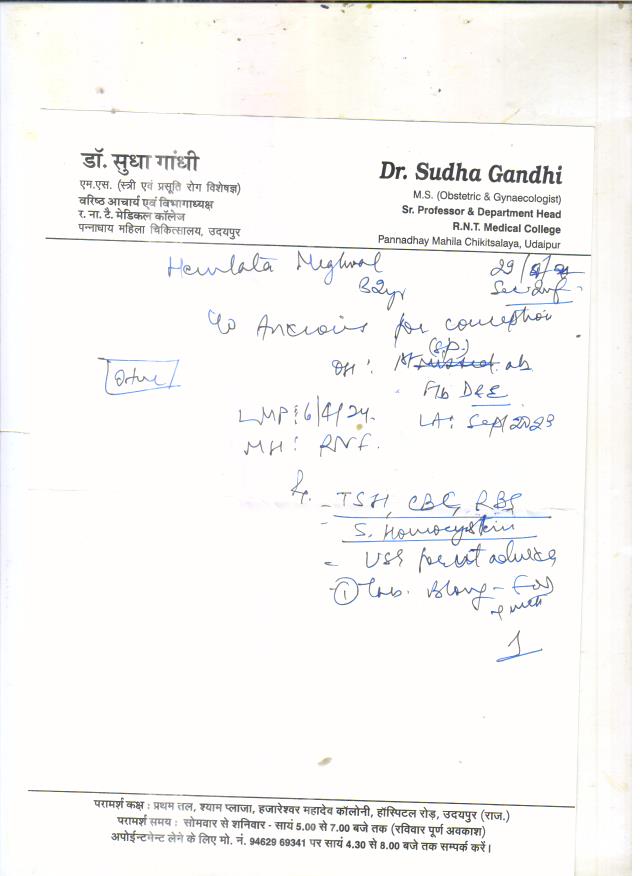 डॉ. सुधा गांधी
एम.एस. (स्त्री एवं प्रसूति रोग विशेषज्ञ)
वरिष्ठ आचार्य एवं विभागाध्यक्ष
र. ना. टै. मेडिकल कॉलेज
पन्नाधाय महिला चिकित्सालय, उदयपुर
Dr. Sudha Gandhi
M.S. (Obstetric & Gynaecologist)
Sr. Professor & Department Head
R.N.T. Medical College
Pannadhay Mahila Chikitsalaya, Udaipur
Hemlata Meghwal
29/
32yr
Anxious for conception
(sp.)
OH :
ab
f/b D&E
LMP: 6/4/24.
LA: Sep/2023
MH:
Rx.
- TSH, CBC, RBS
S. Homocystein
- USG
① Tab.
1
परामर्श कक्ष : प्रथम तल, श्याम प्लाजा, हजारेश्वर महादेव कॉलोनी, हॉस्पिटल रोड़, उदयपुर (राज.)
परामर्श समय : सोमवार से शनिवार - सायं 5.00 से 7.00 बजे तक (रविवार पूर्ण अवकाश)
अपोईन्टमेन्ट लेने के लिए मो. नं. 94629 69341 पर सायं 4.30 से 8.00 बजे तक सम्पर्क करें।